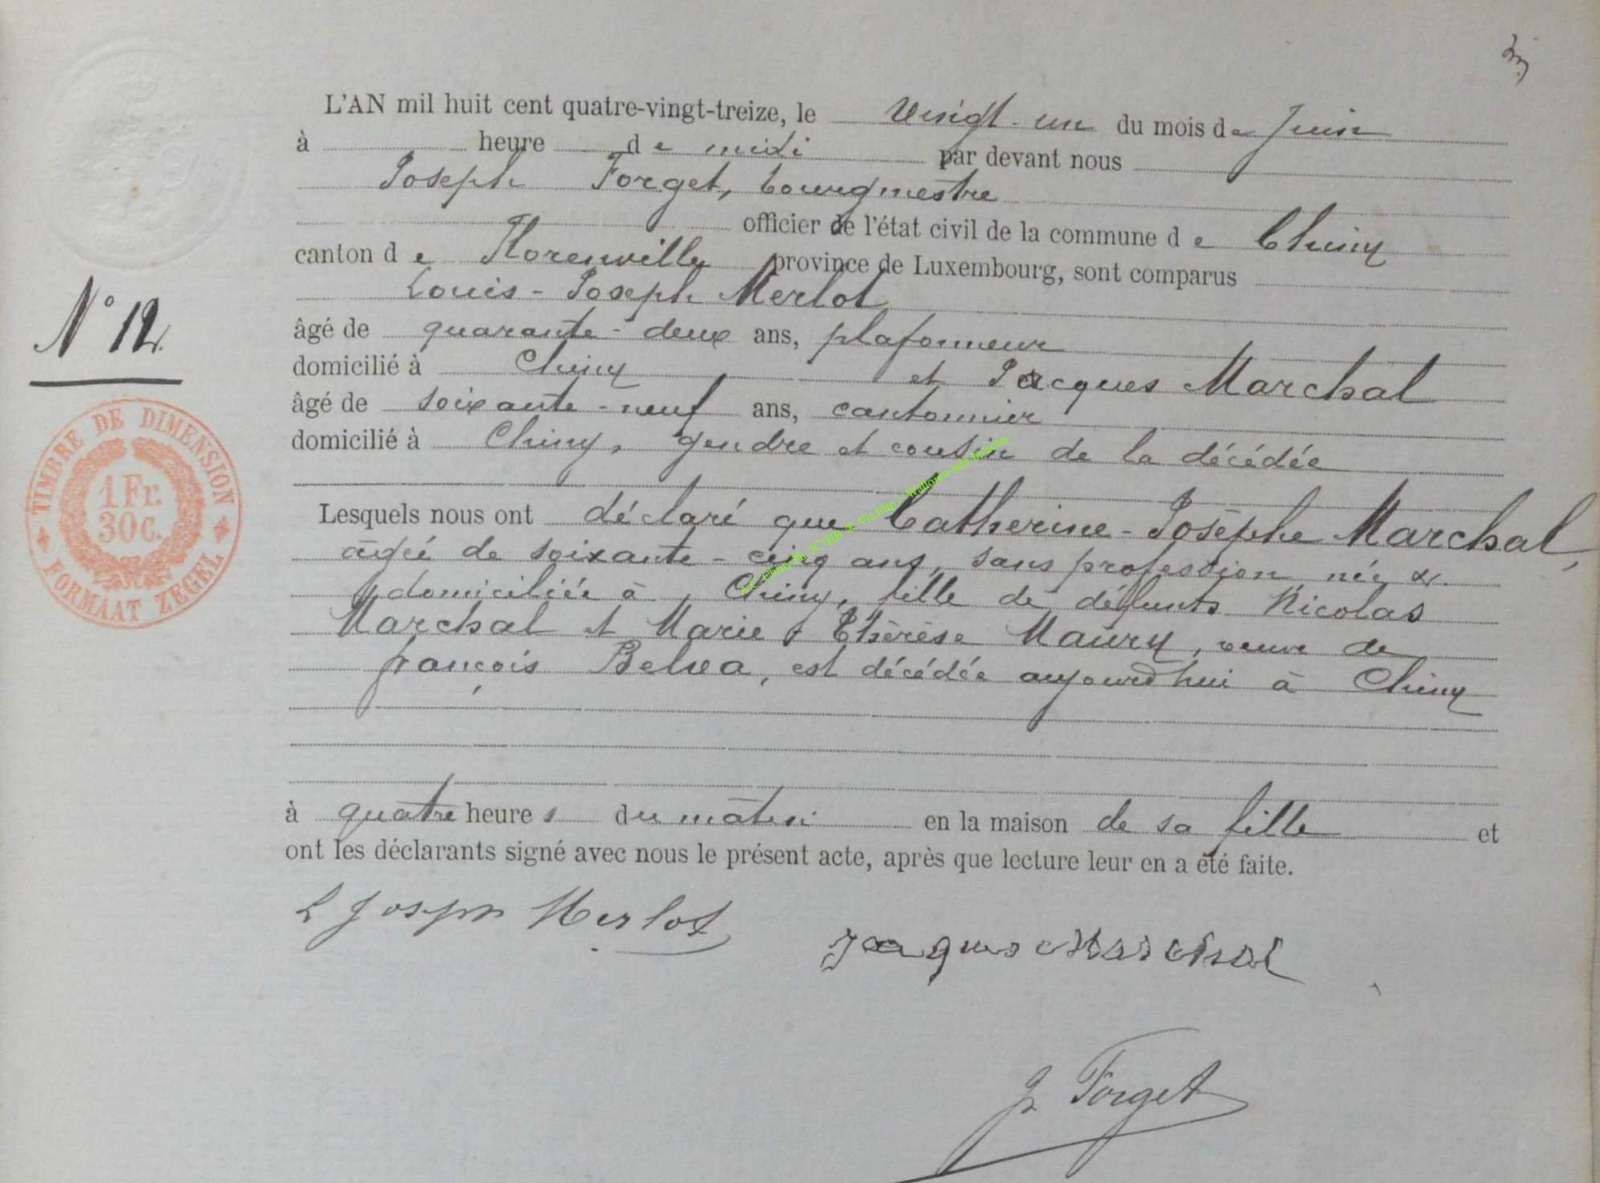 L'AN mil huit cent quatre-vingt-treize, le vingt-un du mois de Juin
à heure de midi par devant nous
Joseph Forget, bourgmestre
officier de l'état civil de la commune de Chiny
canton de Florenville province de Luxembourg, sont comparus
Louis-Joseph Merlot
âgé de quarante-deux ans, plafonneur
domicilié à Chiny et Jacques Marchal
âgé de soixante-neuf ans, cantonnier
domicilié à Chiny, gendre et cousin de la décédée
Lesquels nous ont déclaré que Catherine-Josèphe Marchal,
âgée de soixante-cinq ans, sans profession, née &
domiciliée à Chiny, fille de défunts Nicolas
Marchal et Marie-Thérèse Maury, veuve de
françois Belva, est décédée aujourd'hui à Chiny
à quatre heures du matin en la maison de sa fille et
ont les déclarants signé avec nous le présent acte, après que lecture leur en a été faite.
L Joseph Merlot
Jacques Marchal
J Forget
N° 12.
TIMBRE DE DIMENSION
1 Fr.
30 C.
FORMAAT ZEGEL